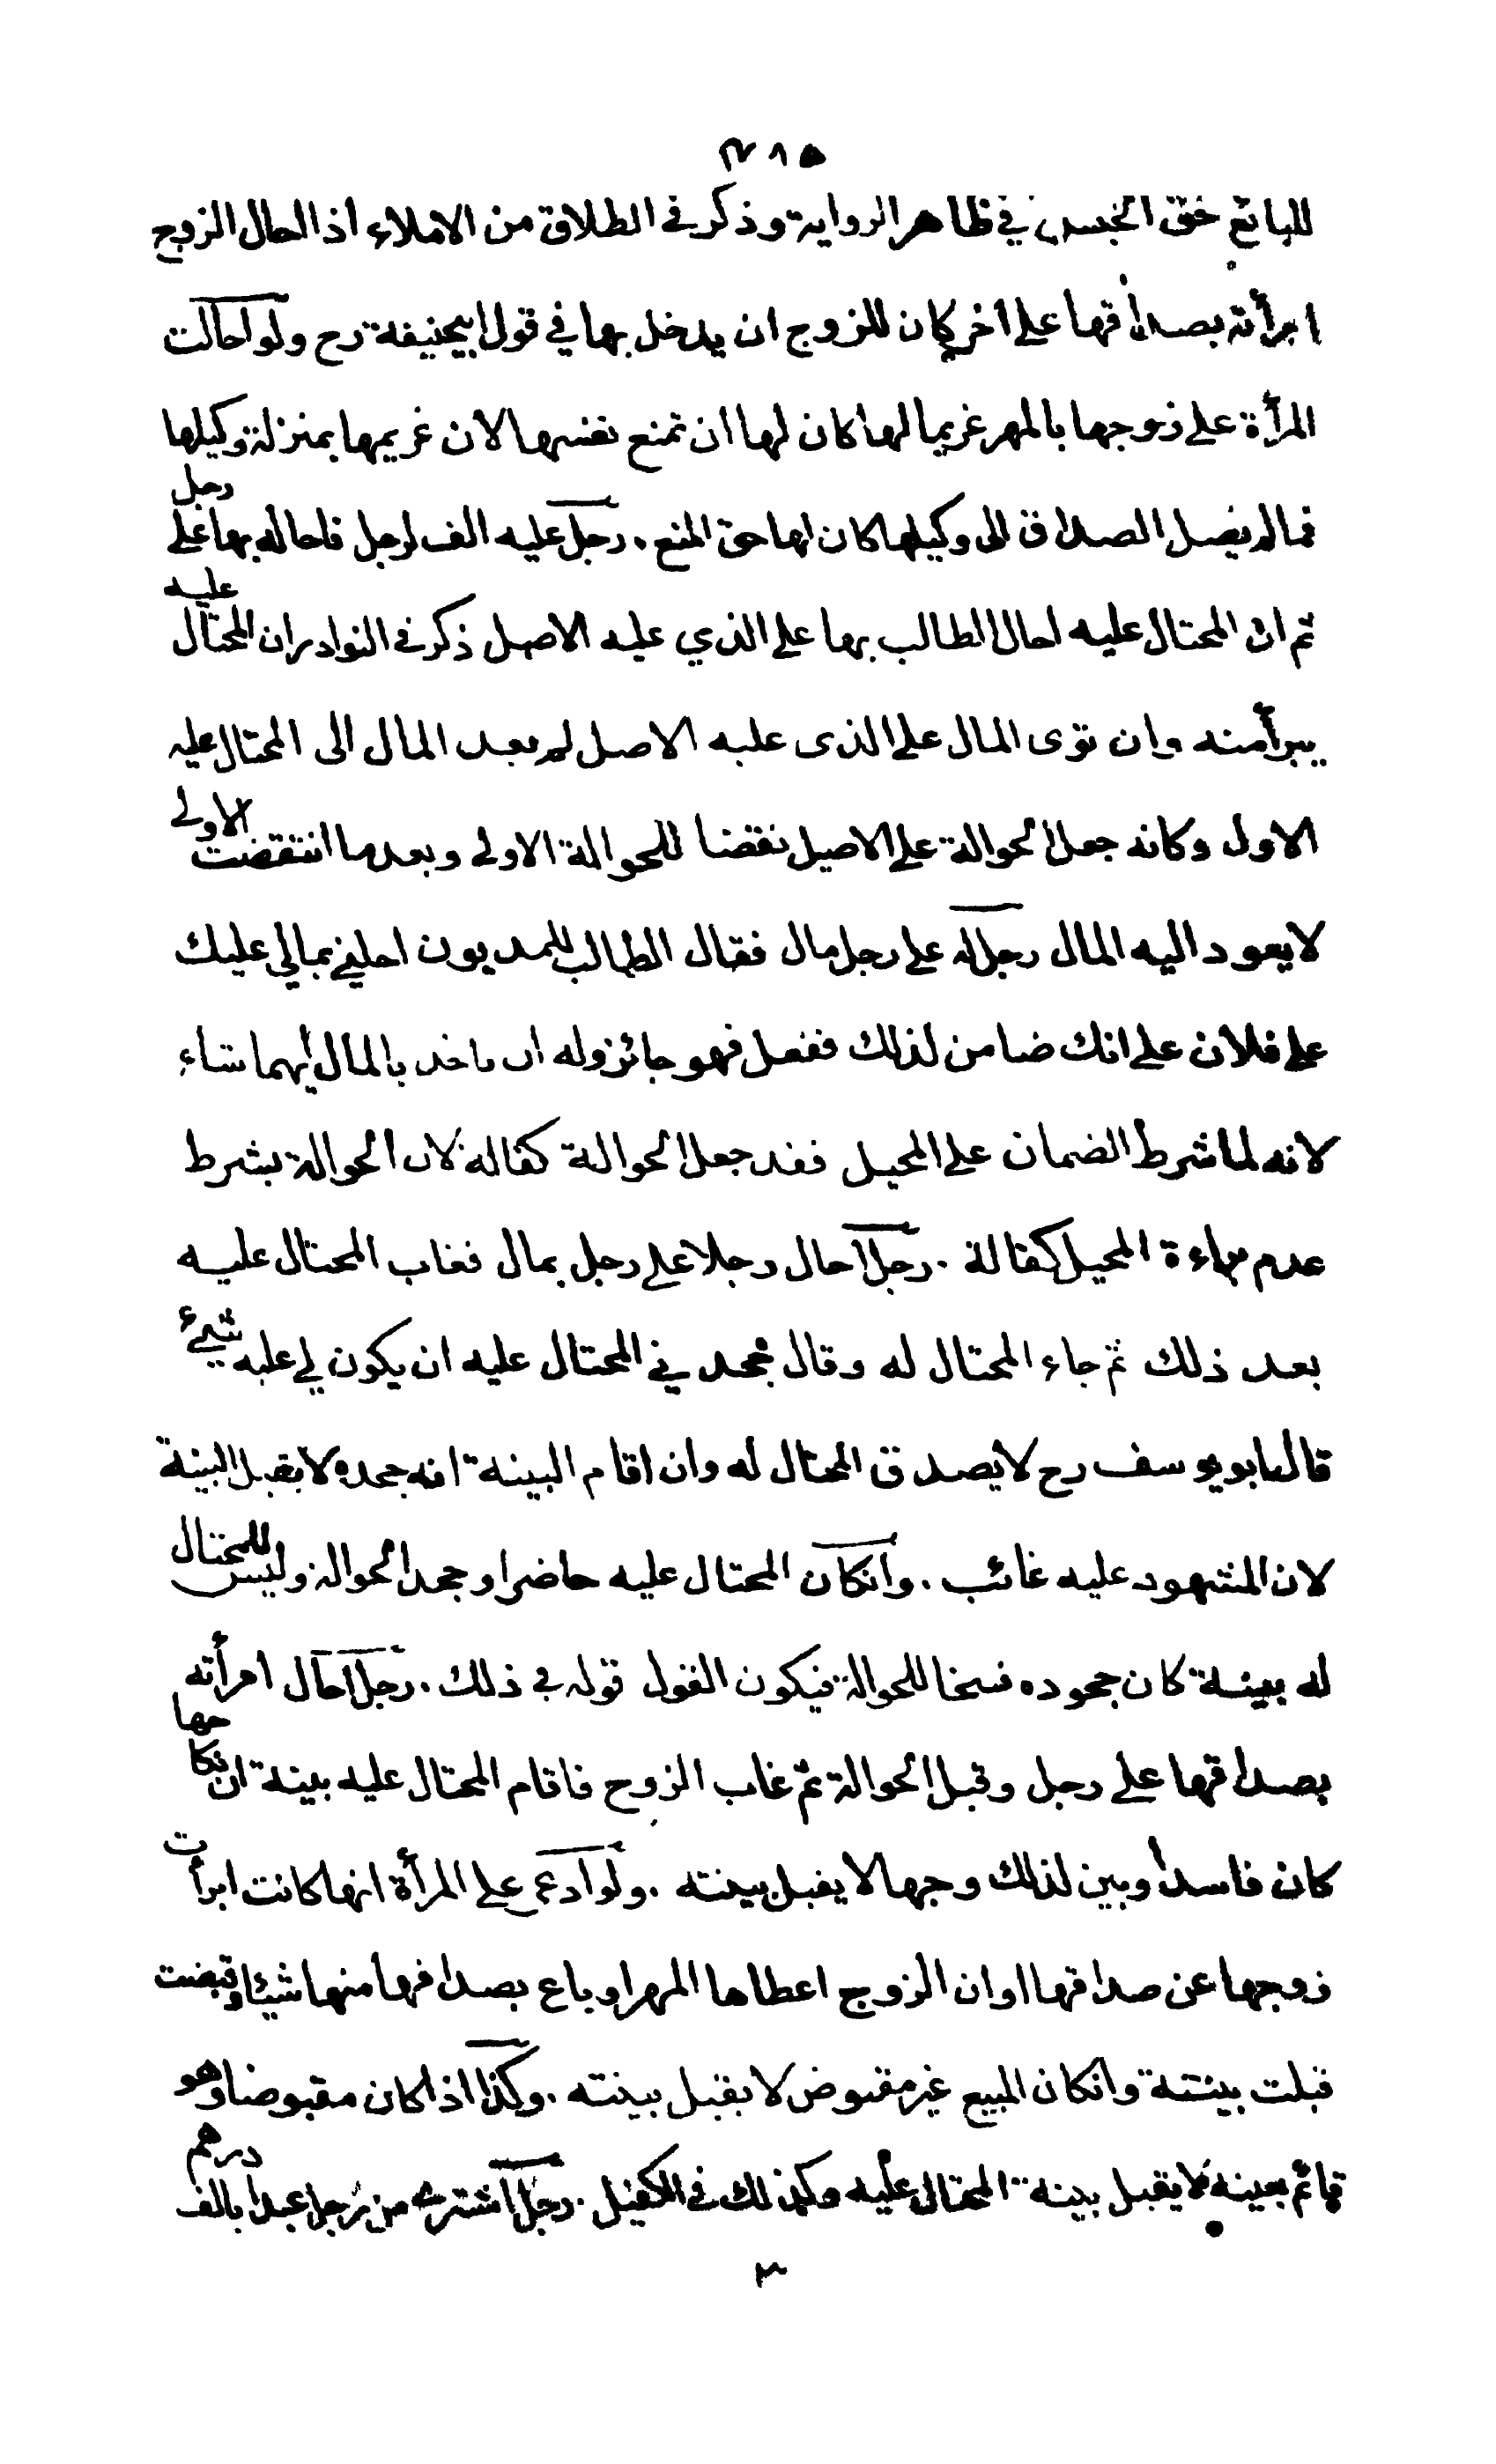 ٣١٥
للبائع حق الحبس في ظاهر الرواية وذكر في الطلاق من الاملاء اذا احال الزوج
امرأته بصداقها على اخر كان للزوج ان يدخل بها في قول ابيحنيفة رح ولو احالت
المرأة على زوجها بالمهر غريما لها كان لها ان تمنع نفسها لان غريمها بمنزلة وكيلها
فما لم يصل الصداق الى وكيلها كان لها حق المنع . رجل عليه الف لرجل فاحاله بها على رجل
ثم ان المحتال عليه احال الطالب بها على الذي عليه الاصل ذكر في النوادر ان المحتال عليه
يبرأ منه وان توى المال على الذى عليه الاصل لم يعد المال الى المحتال عليه
الاول وكانه جعل الحوالة على الاصيل نقضا للحوالة الاولى وبعد ما انتقضت الاولى
لا يعود اليه المال رجل له على رجل مال فقال الطالب للمديون احلني بمالي عليك
على فلان على انك ضامن لذلك ففعل فهو جائز وله ان ياخذ بالمال ايهما شاء
لانه لما شرط الضمان على المحيل فقد جعل الحوالة كفالة لان الحوالة بشرط
عدم براءة المحيل كفالة . رجل احال رجلا على رجل بمال فغاب المحتال عليه
بعد ذلك ثم جاء المحتال له وقال جحد ني المحتال عليه ان يكون لي عليه شيئ
قال ابو يوسف رح لا يصدق المحتال له وان اقام البينة انه جحده لا يقبل البينة
لان المشهود عليه غائب . وانكان المحتال عليه حاضرا وجحد الحوالة وليس للمحتال
له بينة كان جحوده فسخا للحوالة فيكون القول قوله في ذلك . رجل احال امرأته
بصداقها على رجل وقبل الحوالة ثم غاب الزوج فاقام المحتال عليه بينة ان نكاحها
كان فاسدا وبين لذلك وجها لا يقبل بينته . ولو ادعى على المرأة انها كانت ابرأت
زوجها عن صداقها او ان الزوج اعطاها المهر او باع بصداقها منها شيئا وقبضت
قبلت بينته وانكان المبيع غير مقبوض لا يقبل بينته . وكذا اذا كان مقبوضا وهو
قائم بعينه لا يقبل بينة المحتال عليه وكذلك في الكفيل . رجل اشترى من رجل عبدا بالف درهم
٣